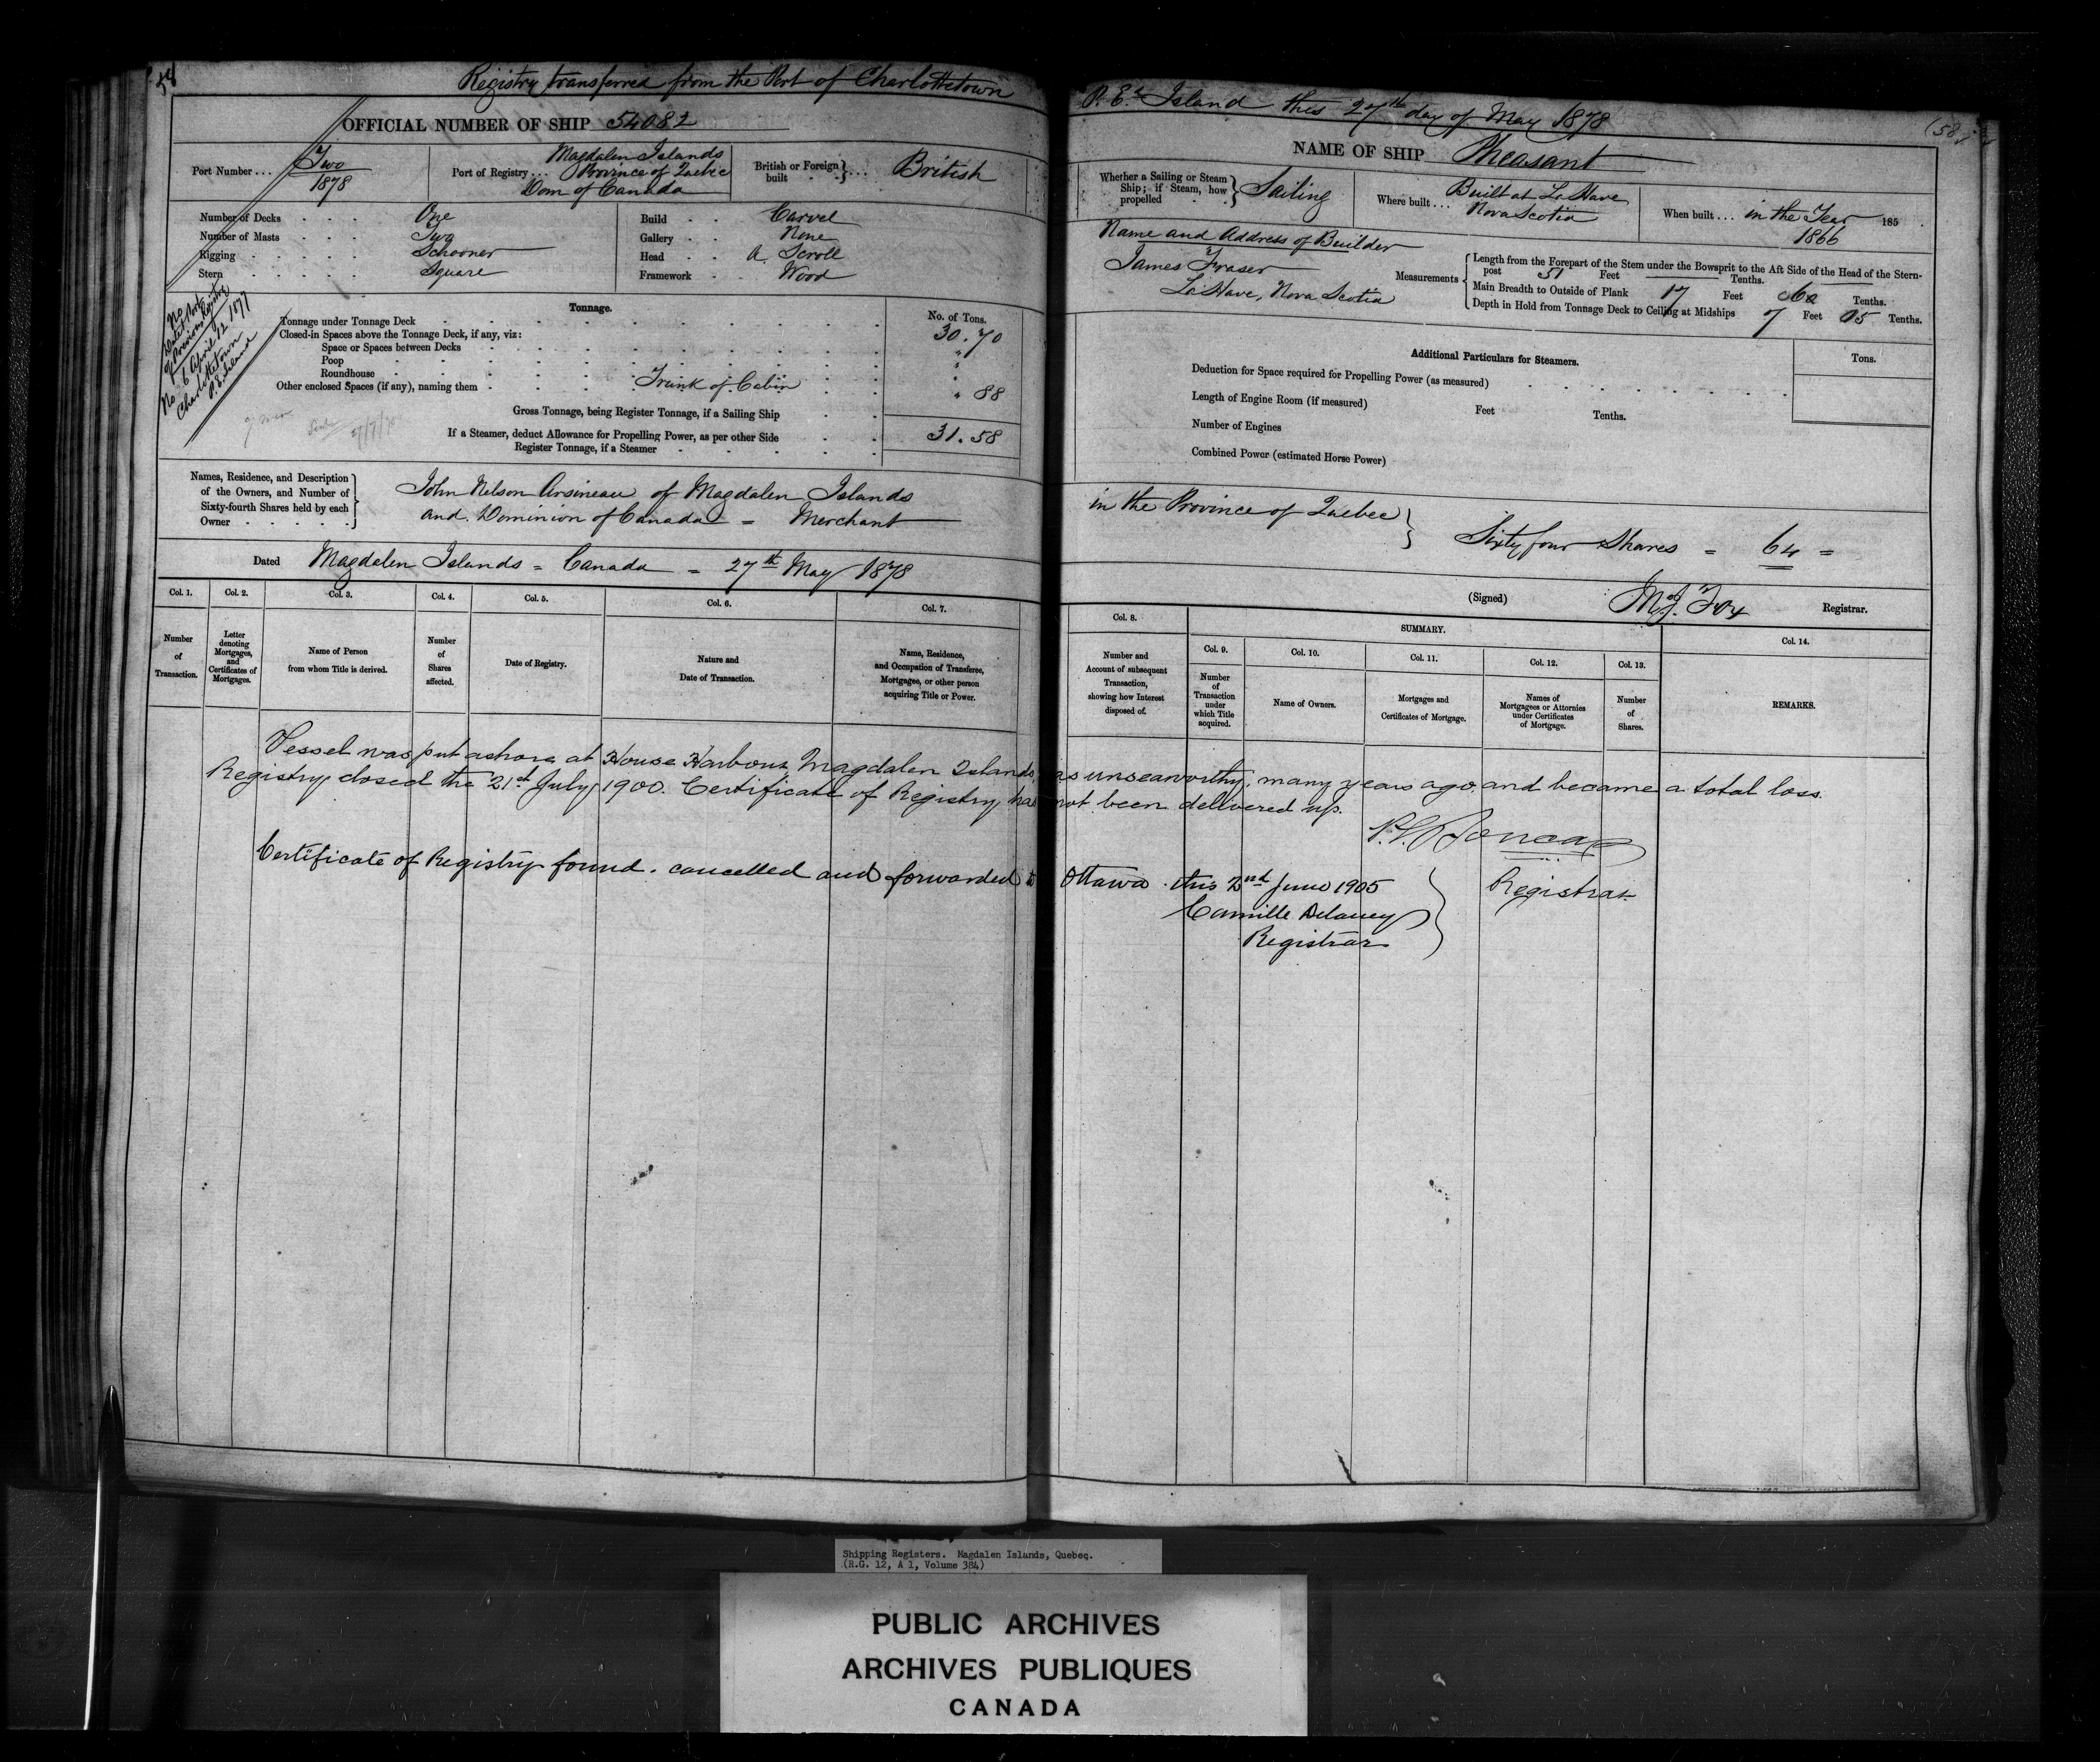 58
Registry transferred from the Port of Charlottetown P. E. Island this 27th day of May 1878
(58
OFFICIAL NUMBER OF SHIP 54082
NAME OF SHIP Pheasant
Port Number . . . Two
1878
Port of Registry . . . Magdalen Islands
Province of Quebec
Dom of Canada
British or Foreign built . . . British
Whether a Sailing or Steam Ship; if Steam, how propelled Sailing
Where built . . . Built at LaHave
Nova Scotia
When built . . . in the Year 185
1866
Number of Decks . . . One
Number of Masts . . . Two
Rigging . . . . . Schooner
Stern . . . . . Square
Build . . Carvel
Gallery . . None
Head . . A Scroll
Framework . Wood
Name and Address of Builder
James Fraser
LaHave, Nova Scotia
Measurements
Length from the Forepart of the Stem under the Bowsprit to the Aft Side of the Head of the Stern-
post 51 Feet Tenths.
Main Breadth to Outside of Plank 17 Feet 60 Tenths.
Depth in Hold from Tonnage Deck to Ceiling at Midships 7 Feet 05 Tenths.
No
Date & Port
of Previous Registry
No 6 April 12 1877
Charlottetown
P. E. Island
Tonnage.
No. of Tons.
Tonnage under Tonnage Deck 30.70
Closed-in Spaces above the Tonnage Deck, if any, viz:
Space or Spaces between Decks "
Poop "
Roundhouse "
Other enclosed Spaces (if any), naming them Trunk of Cabin " 88
Gross Tonnage, being Register Tonnage, if a Sailing Ship
31.58
If a Steamer, deduct Allowance for Propelling Power, as per other Side
Register Tonnage, if a Steamer
Additional Particulars for Steamers.
Tons.
Deduction for Space required for Propelling Power (as measured)
Length of Engine Room (if measured) Feet Tenths.
Number of Engines
Combined Power (estimated Horse Power)
Names, Residence, and Description
of the Owners, and Number of
Sixty-fourth Shares held by each
Owner
John Nelson Arsineau of Magdalen Islands in the Province of Quebec
and Dominion of Canada = Merchant
Sixty four Shares = 64 =
Dated Magdalen Islands = Canada = 27th May 1878
(Signed) M. J. Fox Registrar.
Col. 1.
Number
of
Transaction.
Col. 2.
Letter
denoting
Mortgages,
and
Certificates of
Mortgages.
Col. 3.
Name of Person
from whom Title is derived.
Col. 4.
Number
of
Shares
affected.
Col. 5.
Date of Registry.
Col. 6.
Nature and
Date of Transaction.
Col. 7.
Name, Residence,
and Occupation of Transferee,
Mortgagee, or other person
acquiring Title or Power.
Col. 8.
Number and
Account of subsequent
Transaction,
showing how Interest
disposed of.
SUMMARY.
Col. 9.
Number
of
Transaction
under
which Title
acquired.
Col. 10.
Name of Owners.
Col. 11.
Mortgages and
Certificates of Mortgage.
Col. 12.
Names of
Mortgagees or Attornies
under Certificates
of Mortgage.
Col. 13.
Number
of
Shares.
Col. 14.
REMARKS.
Vessel was put ashore at House Harbour Magdalen Islands, as unseaworthy, many years ago and became a total loss.
Registry closed the 21st July 1900. Certificate of Registry has not been delivered up.
Registrar
Certificate of Registry found. cancelled and forwarded to Ottawa this 2nd June 1905
Camille Delaney
Registrar
Shipping Registers. Magdalen Islands, Quebec.
(R.G. 12, A 1, Volume 384)
PUBLIC ARCHIVES
ARCHIVES PUBLIQUES
CANADA